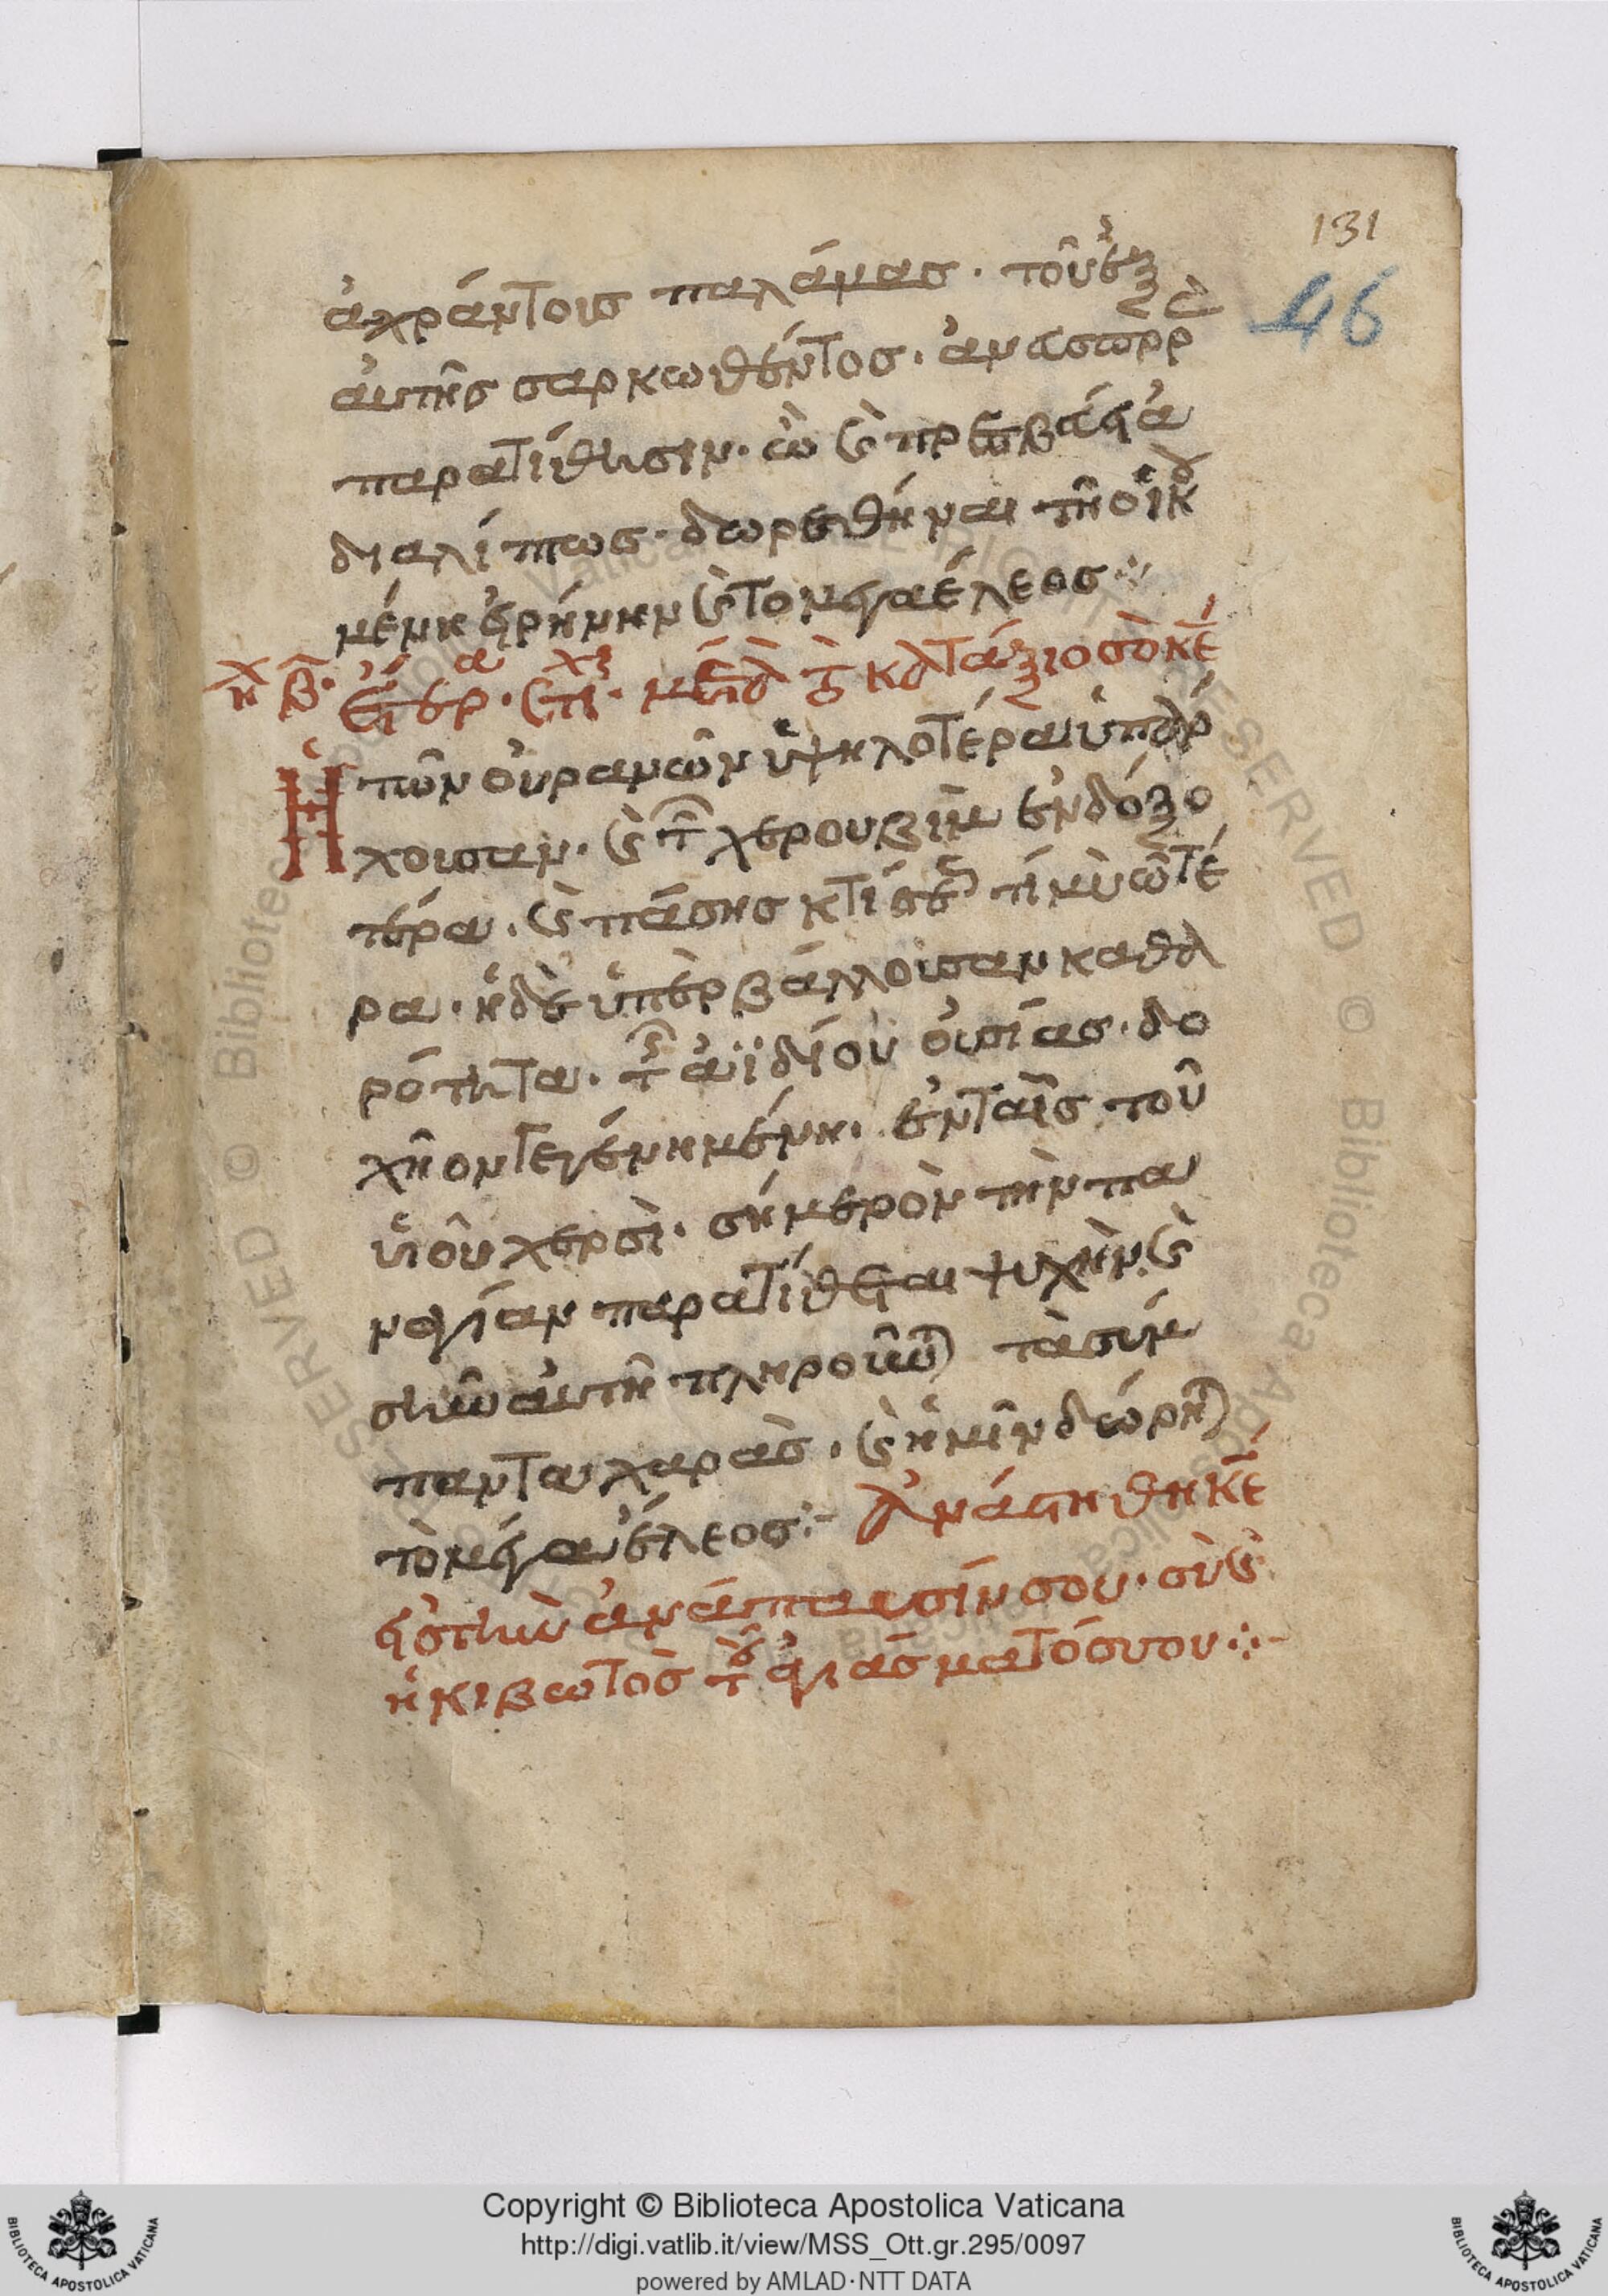 131
46
ἀχράντοισ παλάμασ· τοῦ ἐξ
ἀυτῆς σαρκωθέντοσ· ἀνασπόρως
παρατίθησιν· ὦ καὶ πρεσβεύει ἀ
διαλίπωσ· δωρεθῆναι τῆ οἰκου
μένη εἰρήνην καὶ το μέγα ἔλεοσ
τῶν ὀυρανῶν ὑψηλοτέρα ὑπάρ
χουσαν· καὶ τῶν χερουβὶμ ἐνδοξο
τέρα· καὶ πάσησ κτίσεωσ τιμιωτέ
ρα· ἡ δὲ ὑπὲρβάλλουσαν καθα
ρότητα· τῆσ ἀϊδίου ὀυσίασ· δο
χῆον τεγένημένη· ἐν ταῖσ τοῦ
ὑιοῦ χερσὶ· σήμερὸν τὴν πα
ναγίαν παρατίθεται ψυχὴν καὶ
σὺν ἀυτῆ πληροῦται τὰ σύμ
παντα χαρᾶσ· καὶ ἡμῖν δωρῆται
τὸ μέγα ἔλεοσ:- Ἀνάστηθη κε
εἰσ τὴν ἀνάπαυσίν σου· σὺ καὶ
ἡ κιβωτὸσ τοῦ ἁγιάσματόσ σου:-
Copyright © Biblioteca Apostolica Vaticana
http://digi.vatlib.it/view/MSS_Ott.gr.295/0097
powered by AMLAD·NTT DATA
BIBLIOTECA APOSTOLICA VATICANA
BIBLIOTECA APOSTOLICA VATICANA